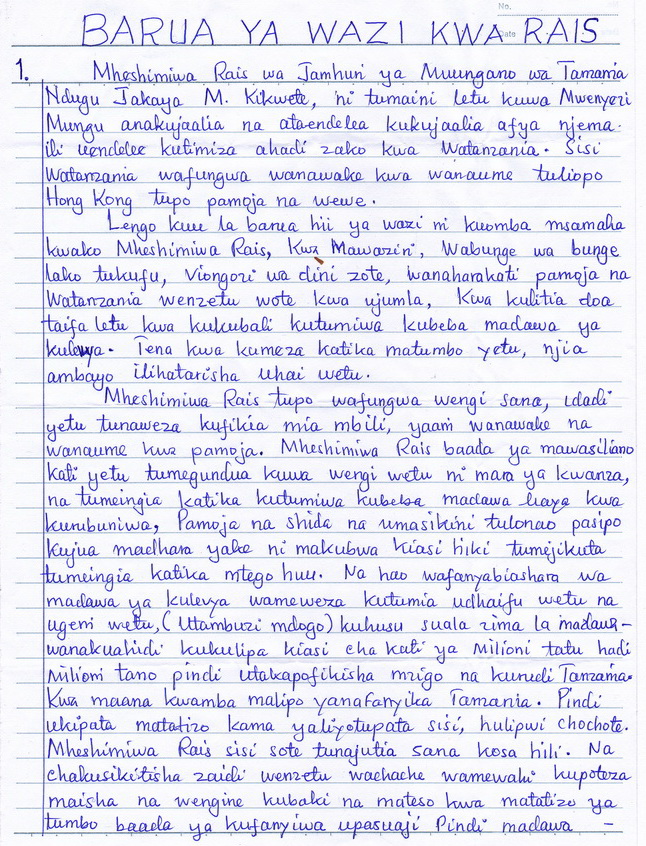 No.
Date
BARUA YA WAZI KWA RAIS
1. Mheshimiwa Rais wa Jamhuri ya Muungano wa Tanzania
Ndugu Jakaya M. Kikwete, ni tumaini letu kuwa Mwenyezi
Mungu anakujaalia na ataendelea kukujaalia afya njema
ili uendelee kutimiza ahadi zako kwa Watanzania. Sisi
Watanzania wafungwa wanawake kwa wanaume tuliopo
Hong Kong tupo pamoja na wewe.
Lengo kuu la barua hii ya wazi ni kuomba msamaha
kwako Mheshimiwa Rais, Kwa Mawaziri, Wabunge wa bunge
lako tukufu, Viongozi wa dini zote, wanaharakati pamoja na
Watanzania wenzetu wote kwa ujumla, Kwa kulitia doa
taifa letu kwa kukubali kutumiwa kubeba madawa ya
kulevya. Tena kwa kumeza katika matumbo yetu, njia
ambayo ilihatarisha uhai wetu.
Mheshimiwa Rais tupo wafungwa wengi sana, idadi
yetu tunaweza kufikia mia mbili, yaani wanawake na
wanaume kwa pamoja. Mheshimiwa Rais baada ya mawasiliano
kati yetu tumegundua kuwa wengi wetu ni mara ya kwanza,
na tumeingia katika kutumiwa kubeba madawa haya kwa
kurubuniwa, Pamoja na shida na umasikini tulonao pasipo
kujua madhara yake ni makubwa kiasi hiki tumejikuta
tumeingia katika mtego huu. Na hao wafanyabiashara wa
madawa ya kulevya wameweza kutumia udhaifu wetu na
ugeni wetu, (Utambuzi mdogo) kuhusu suala zima la madawa-
wanakuahidi kukulipa kiasi cha kati ya Milioni tatu hadi
Milioni tano pindi utakapofikisha mzigo na kurudi Tanzania.
Kwa maana kwamba malipo yanafanyika Tanzania. Pindi
ukipata matatizo kama yaliyotupata sisi, hulipwi chochote.
Mheshimiwa Rais sisi sote tunajutia sana kosa hili. Na
chakusikitisha zaidi wenzetu wachache wamewahi kupoteza
maisha na wengine kubaki na mateso kwa matatizo ya
tumbo baada ya kufanyiwa upasuaji Pindi madawa -